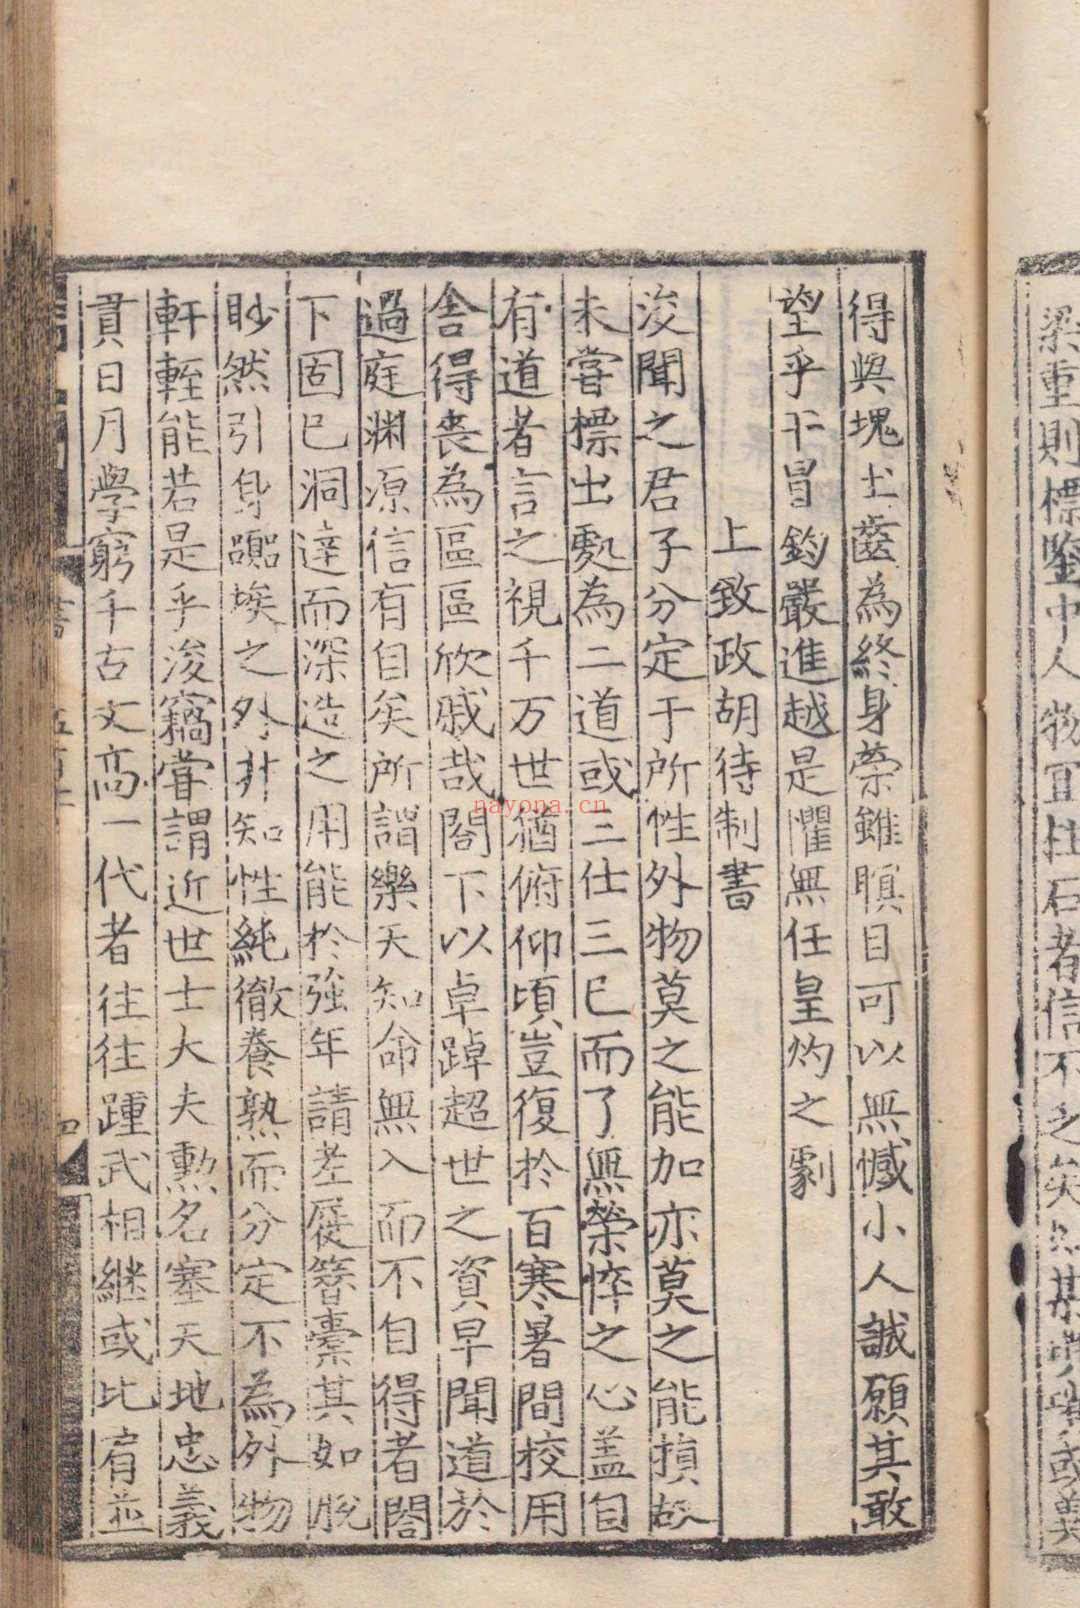 梁重則標鑒中人物宜柱石者信不之矣
得與塊土齒為終身榮雖瞑目可以無憾小人誠願其敢
望乎干冒鈞嚴進越是懼無任皇灼之劇
上致政胡待制書
浚聞之君子分定于所性外物莫之能加亦莫之能損故
未嘗標出處為二道或三仕三已而了無榮悴之心蓋自
有道者言之視千万世猶俯仰頃豈復於百寒暑間校用
舎得喪為區區欣戚哉閤下以卓踔超世之資早聞道於
過庭淵源信有自矣所謂樂天知命無入而不自得者閤
下固已洞達而深造之用能於強年請老屣簪橐其如脫
眇然引身䶮埃之外非知性純徹養熟而分定不為外物
軒輊能若是乎浚竊嘗謂近世士大夫勳名塞天地忠義
貫日月學窮千古文高一代者往往踵武相継或比肩並
書
四
nayona.cn